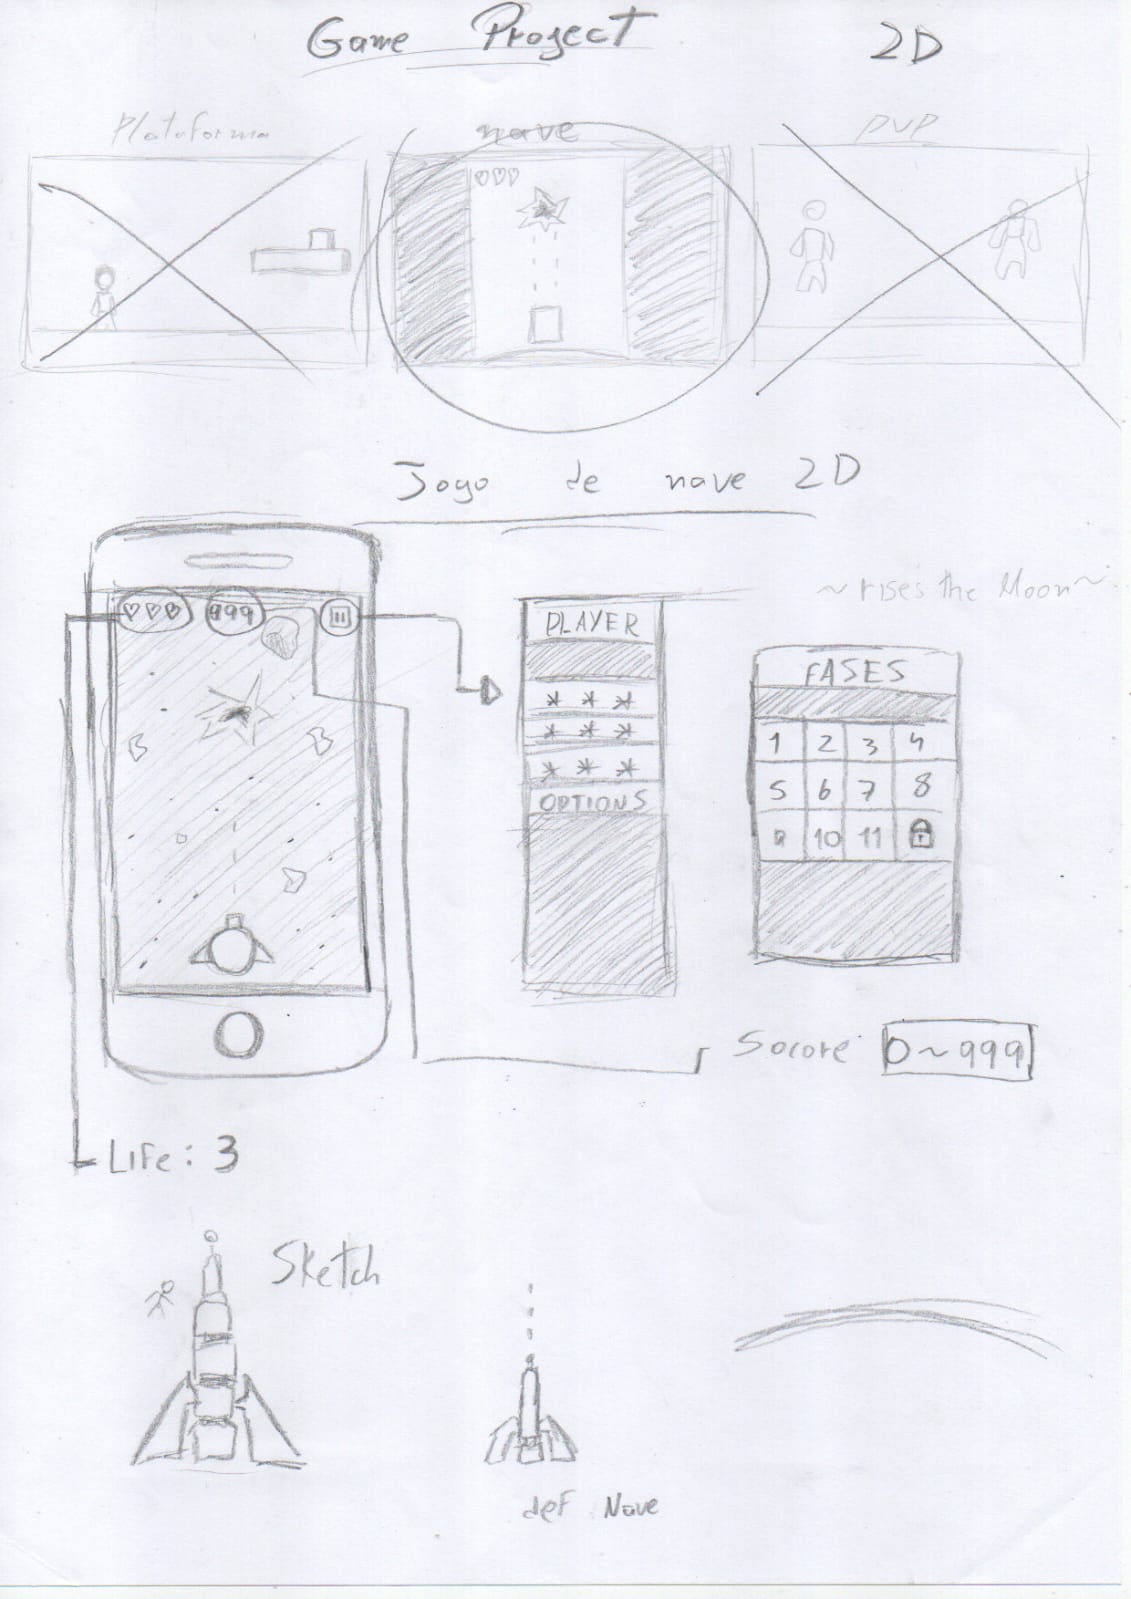 Game Project 2D
Plataforma nave PVP
Jogo de nave 2D
~rises the Moon~
999
PLAYER
* * *
* * *
* * *
OPTIONS
FASES
1 2 3 4
5 6 7 8
10 11
Socore 0~999
Life: 3
Sketch
def Nave